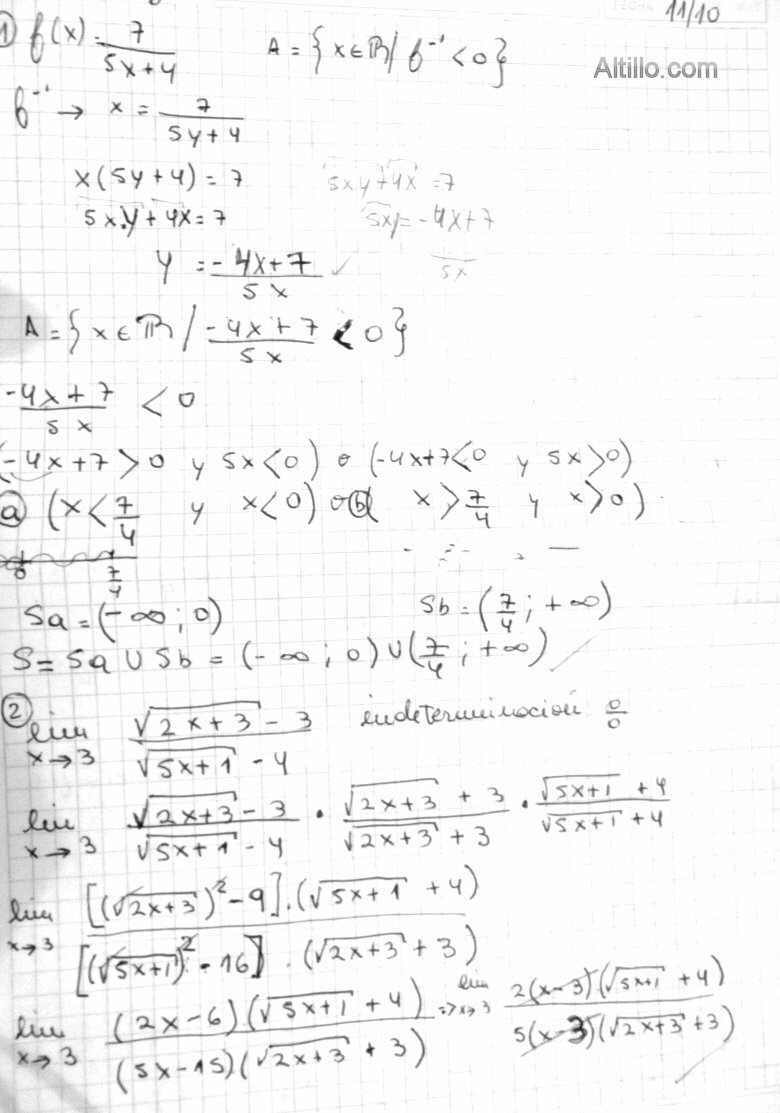 11/10
① f(x) = 7/(5x+4)   A = {x ∈ ℝ / f⁻¹ < 0}
Altillo.com
f⁻¹ → x = 7/(5y+4)
x(5y+4) = 7   5xy+4x = 7
5x.y + 4x = 7   5xy = -4x+7
y = (-4x+7)/(5x) ✓   5x
A = {x ∈ ℝ / (-4x+7)/(5x) < 0}
(-4x+7)/(5x) < 0
(-4x+7 > 0 y 5x < 0) o (-4x+7 < 0 y 5x > 0)
ⓐ (x < 7/4 y x < 0) o ⓑ( x > 7/4 y x > 0)
0   7/4
Sa = (-∞; 0)   Sb = (7/4; +∞)
S = Sa ∪ Sb = (-∞; 0) ∪ (7/4; +∞)
② lim x→3 (√(2x+3) - 3)/(√(5x+1) - 4)   indeterminación 0/0
lim x→3 (√(2x+3) - 3)/(√(5x+1) - 4) · (√(2x+3) + 3)/(√(2x+3) + 3) · (√(5x+1) + 4)/(√(5x+1) + 4)
lim x→3 [(√(2x+3))² - 9].(√(5x+1) + 4)/[(√(5x+1))² - 16].(√(2x+3) + 3)
lim x→3 (2x-6)(√(5x+1) + 4)/(5x-15)(√(2x+3) + 3) => lim x→3 2(x-3)(√(5x+1) + 4)/5(x-3)(√(2x+3) + 3)